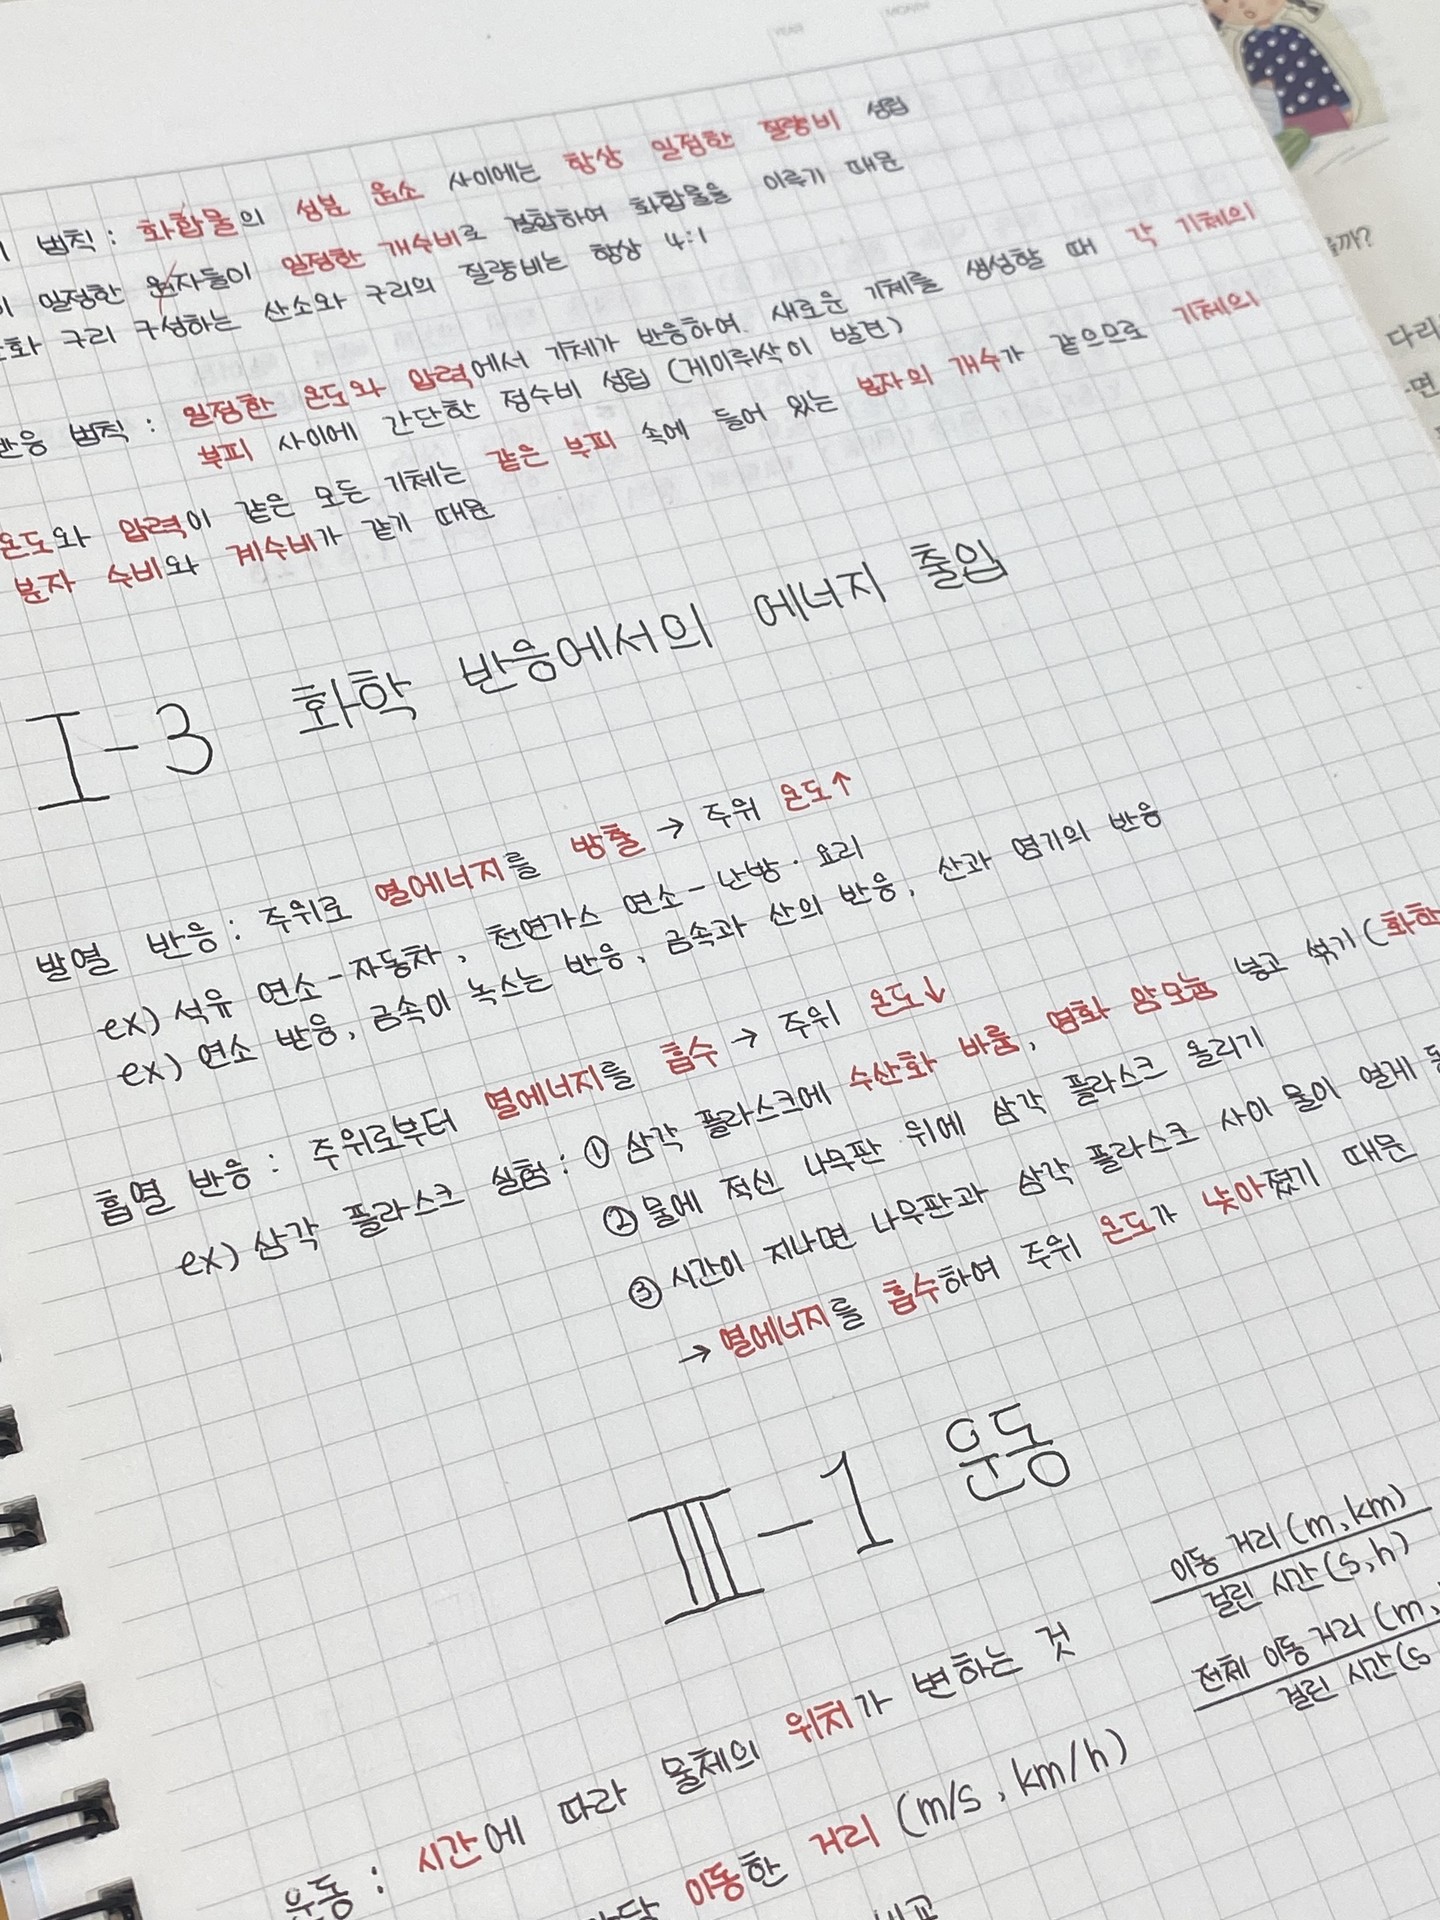 법칙 : 화합물의 성분 원소 사이에는 항상 일정한 질량비 성립
일정한 원자들이 일정한 개수비로 결합하여 화합물을 이루기 때문
화 구리 구성하는 산소와 구리의 질량비는 항상 4:1
반응 법칙 : 일정한 온도와 압력에서 기체가 반응하여 새로운 기체를 생성할 때 각 기체의
부피 사이에 간단한 정수비 성립 (게이뤼삭이 발견)
온도와 압력이 같은 모든 기체는 같은 부피 속에 들어 있는 분자의 개수가 같으므로 기체의
분자 수비와 계수비가 같기 때문
I-3 화학 반응에서의 에너지 출입
발열 반응 : 주위로 열에너지를 방출 → 주위 온도↑
ex) 석유 연소 - 자동차, 천연가스 연소 - 난방·요리
ex) 연소 반응, 금속이 녹스는 반응, 금속과 산의 반응, 산과 염기의 반응
흡열 반응 : 주위로부터 열에너지를 흡수 → 주위 온도↓
ex) 삼각 플라스크 실험 : ① 삼각 플라스크에 수산화 바륨, 염화 암모늄 넣고 섞기 (화학
② 물에 적신 나무판 위에 삼각 플라스크 올리기
③ 시간이 지나면 나무판과 삼각 플라스크 사이 물이 얼게
→ 열에너지를 흡수하여 주위 온도가 낮아졌기 때문
III-1 운동
이동 거리 (m, km)
걸린 시간 (s, h)
전체 이동 거리 (m,
걸린 시간 (s
운동 : 시간에 따라 물체의 위치가 변하는 것
이동한 거리 (m/s, km/h)
비교
을까?
다리
면